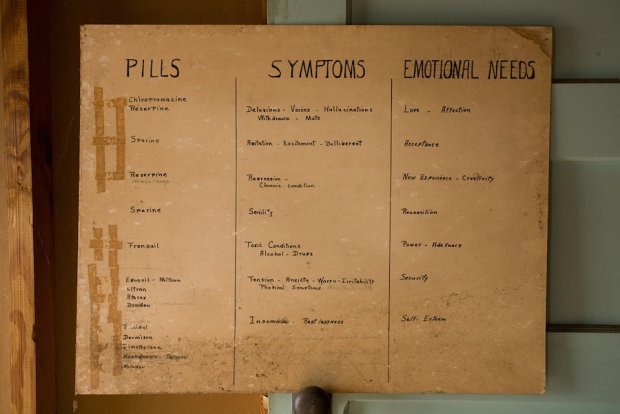 PILLS SYMPTOMS EMOTIONAL NEEDS
Chlropromazine
Reserpine
Delusions - Voices - Hallucinations
Withdrawn - Mute
Love - Affection
Sparine
Agitation - Excitement - Belligerent
Acceptance
Reserpine
Regression -
Chronic condition
New Experience - Creativity
Sparine
Senility
Recognition
Frenquil
Toxic Conditions
Alcohol - Drugs
Power - Adequacy
Equanil - Miltown
Atarax
Tension - Anxiety - Worry - Irritability
Physical Symptoms
Security
Insomnia - Restlessness
Self-Esteem
Dormison
Noludar